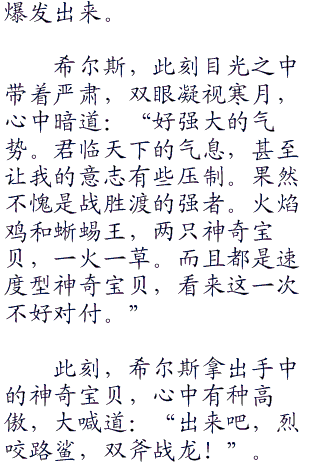 爆发出来。
希尔斯，此刻目光之中
带着严肃，双眼凝视寒月，
心中暗道：“好强大的气
势。君临天下的气息，甚至
让我的意志有些压制。果然
不愧是战胜渡的强者。火焰
鸡和蜥蜴王，两只神奇宝
贝，一火一草。而且都是速
度型神奇宝贝，看来这一次
不好对付。”
此刻，希尔斯拿出手中
的神奇宝贝，心中有种高
傲，大喊道：“出来吧，烈
咬路鲨，双斧战龙！”。